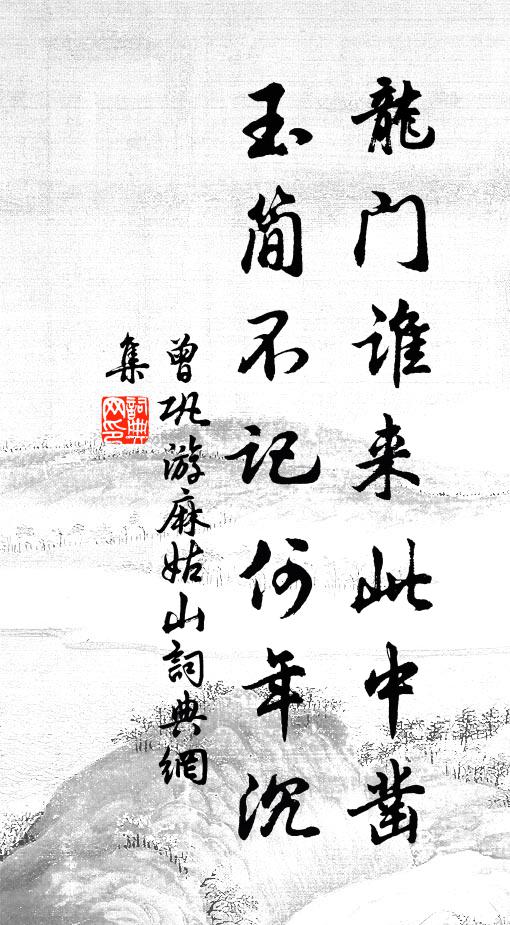 龍门谁来此中凿
玉简不记何年沉
曾巩游麻姑山詞典網
集
詞典
网印